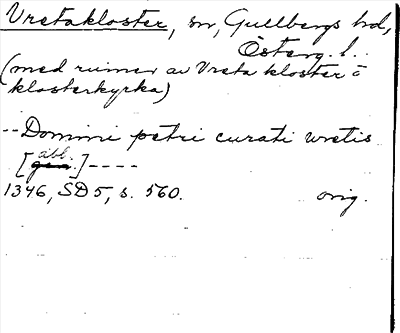 Vretakloster, sn, Gullbergs hd,
Österg. l..
(med ruiner av Vreta kloster o
klosterkyrka)
--Domini petri curati wretis
abl.
[gen.]----
1346, SD 5, s. 560. orig.